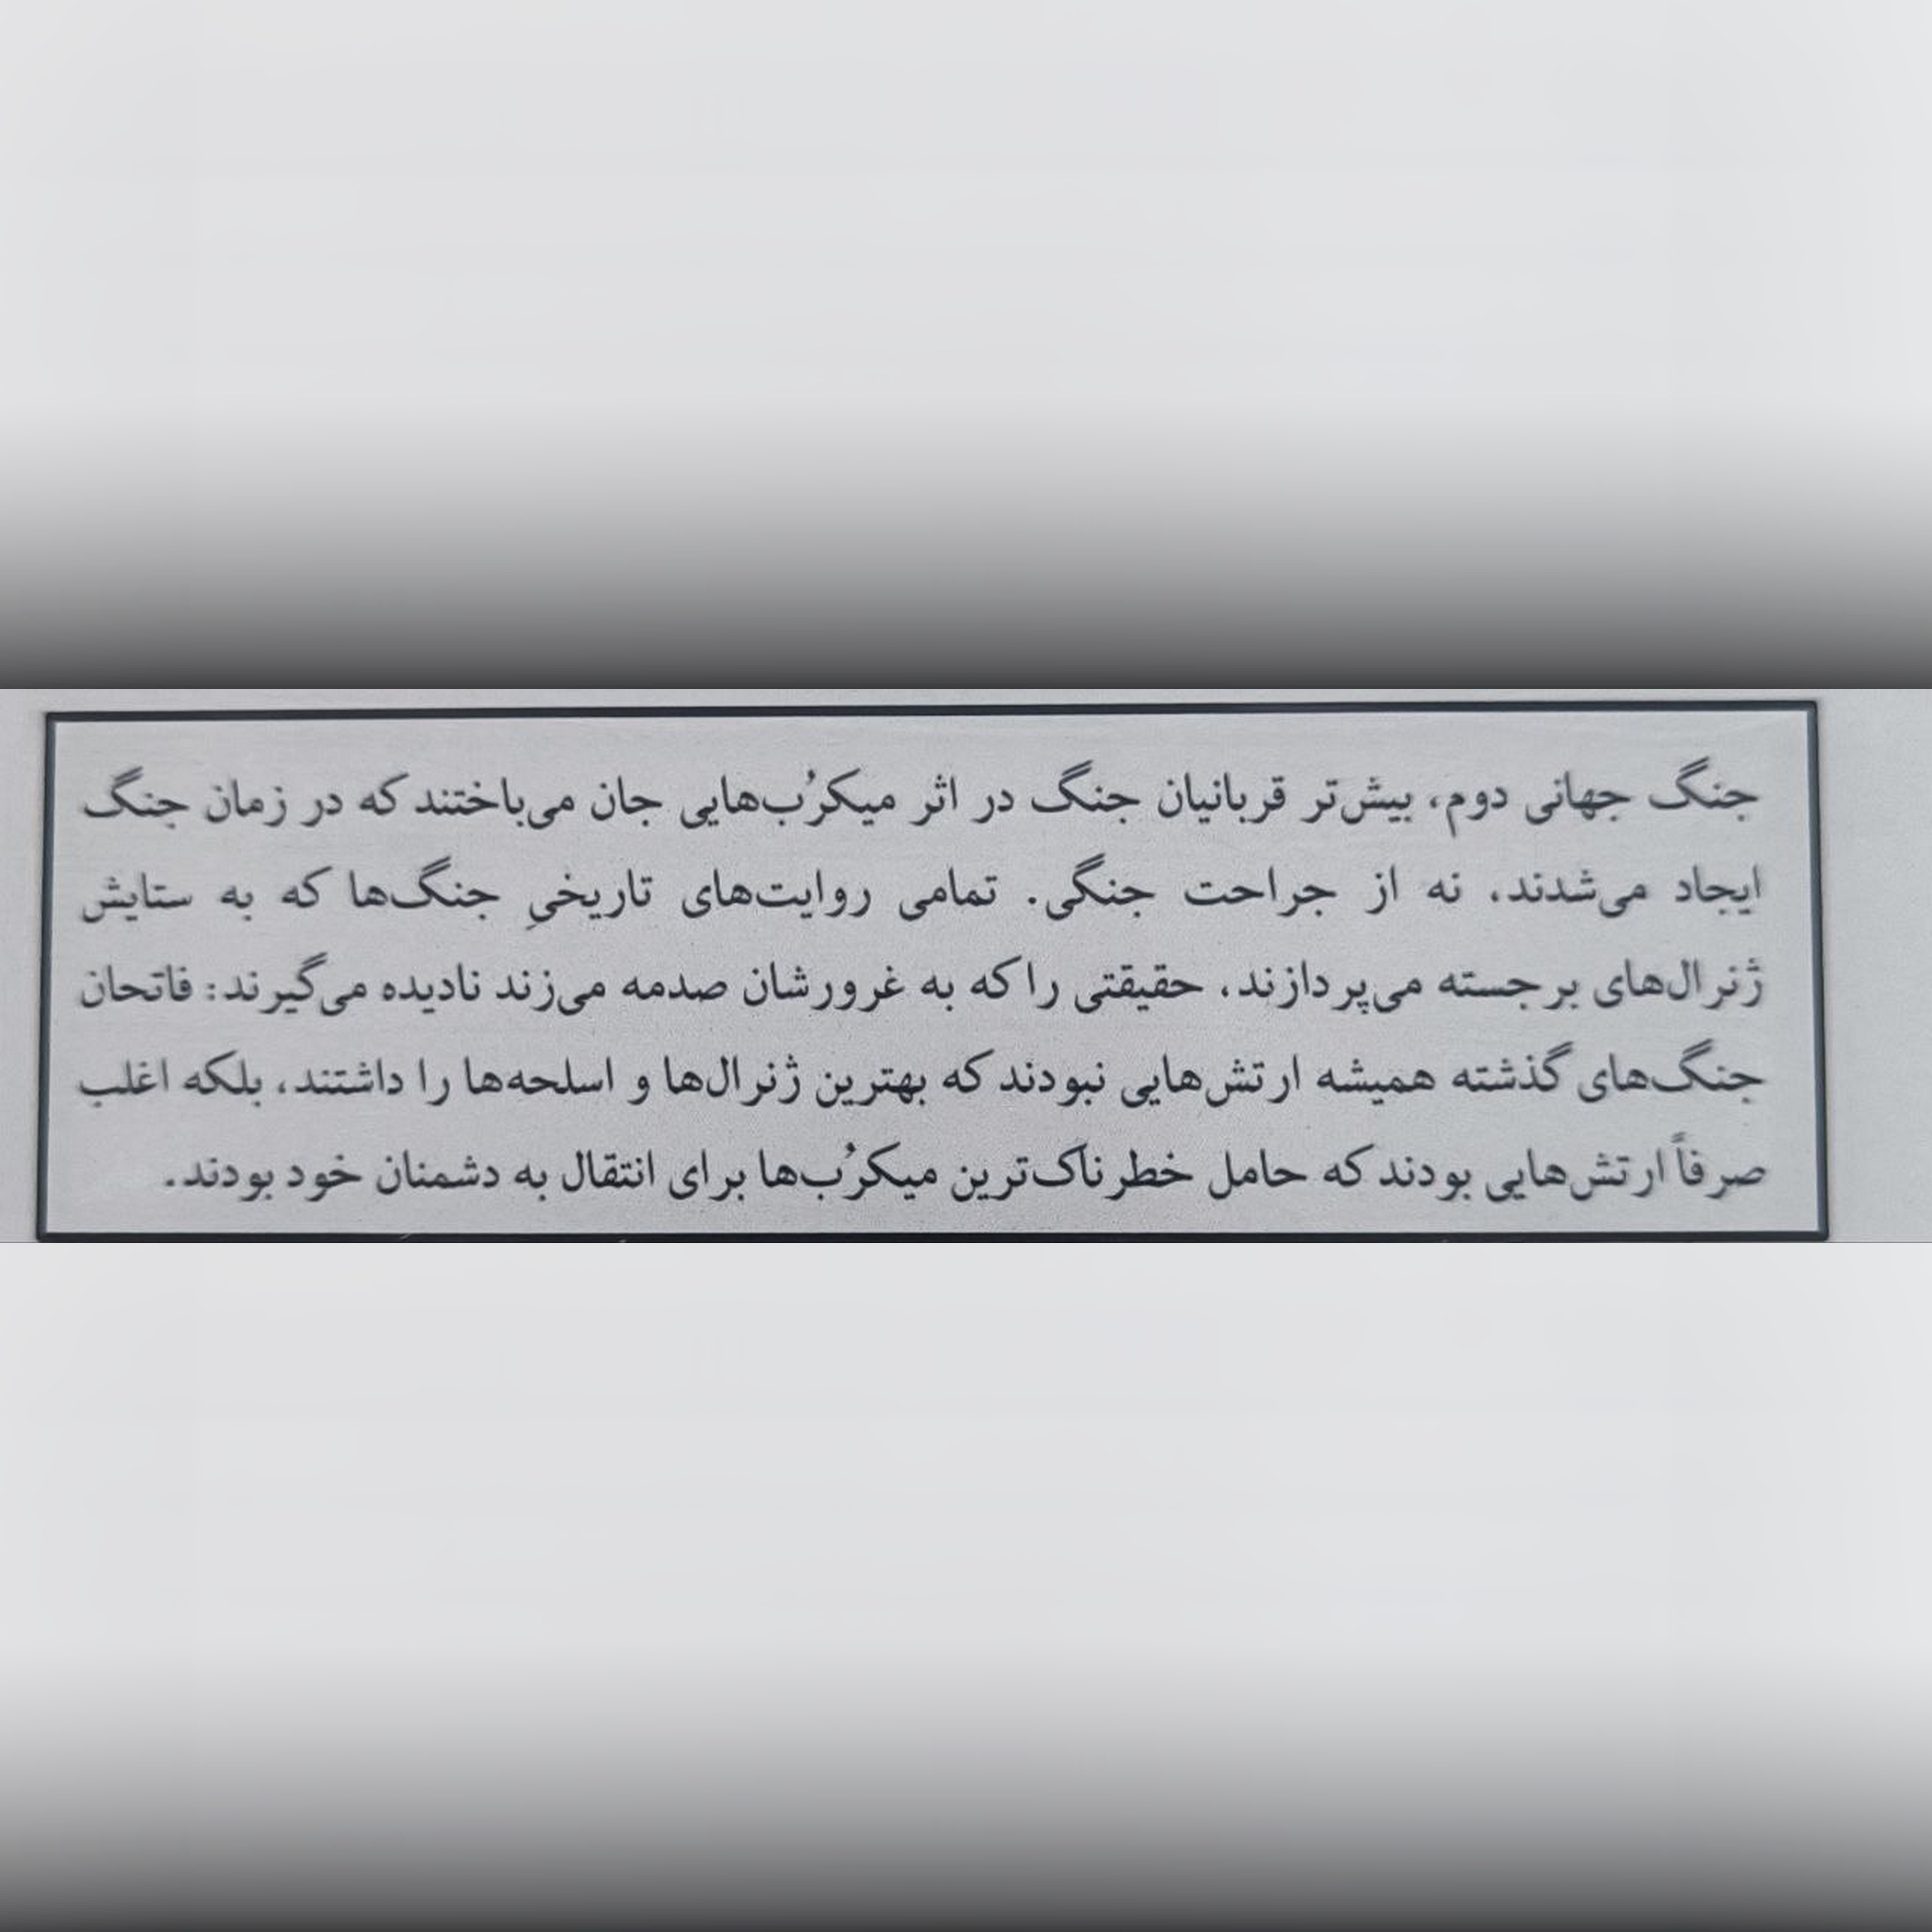 جنگ جهانی دوم، بیش‌تر قربانیان جنگ در اثر میکرُب‌هایی جان می‌باختند که در زمان جنگ
ایجاد می‌شدند، نه از جراحت جنگی. تمامی روایت‌های تاریخیِ جنگ‌ها که به ستایش
ژنرال‌های برجسته می‌پردازند، حقیقتی را که به غرورشان صدمه می‌زند نادیده می‌گیرند: فاتحان
جنگ‌های گذشته همیشه ارتش‌هایی نبودند که بهترین ژنرال‌ها و اسلحه‌ها را داشتند، بلکه اغلب
صرفاً ارتش‌هایی بودند که حامل خطرناک‌ترین میکرُب‌ها برای انتقال به دشمنان خود بودند.